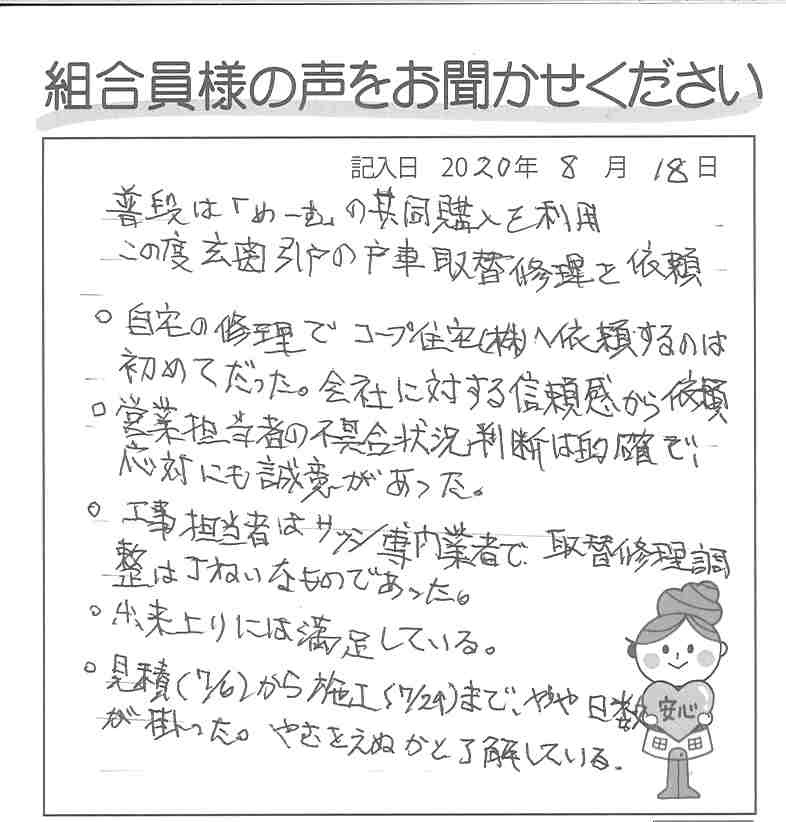 組合員様の声をお聞かせください
記入日 2020年 8月 18日
普段は「めーむ」の共同購入を利用
この度玄関引戸の戸車取替修理を依頼
○自宅の修理でコープ住宅(株)へ依頼するのは
初めてだった。会社に対する信頼感から依頼
○営業担当者の不具合状況判断は的確で、
応対にも誠意があった。
○工事担当者はサッシ専門業者で、取替修理調
整はていねいなものであった。
○出来上りには満足している。
○見積(7/6)から施工(7/29)まで、やや日数
が掛った。やむをえぬかと了解している。
安心